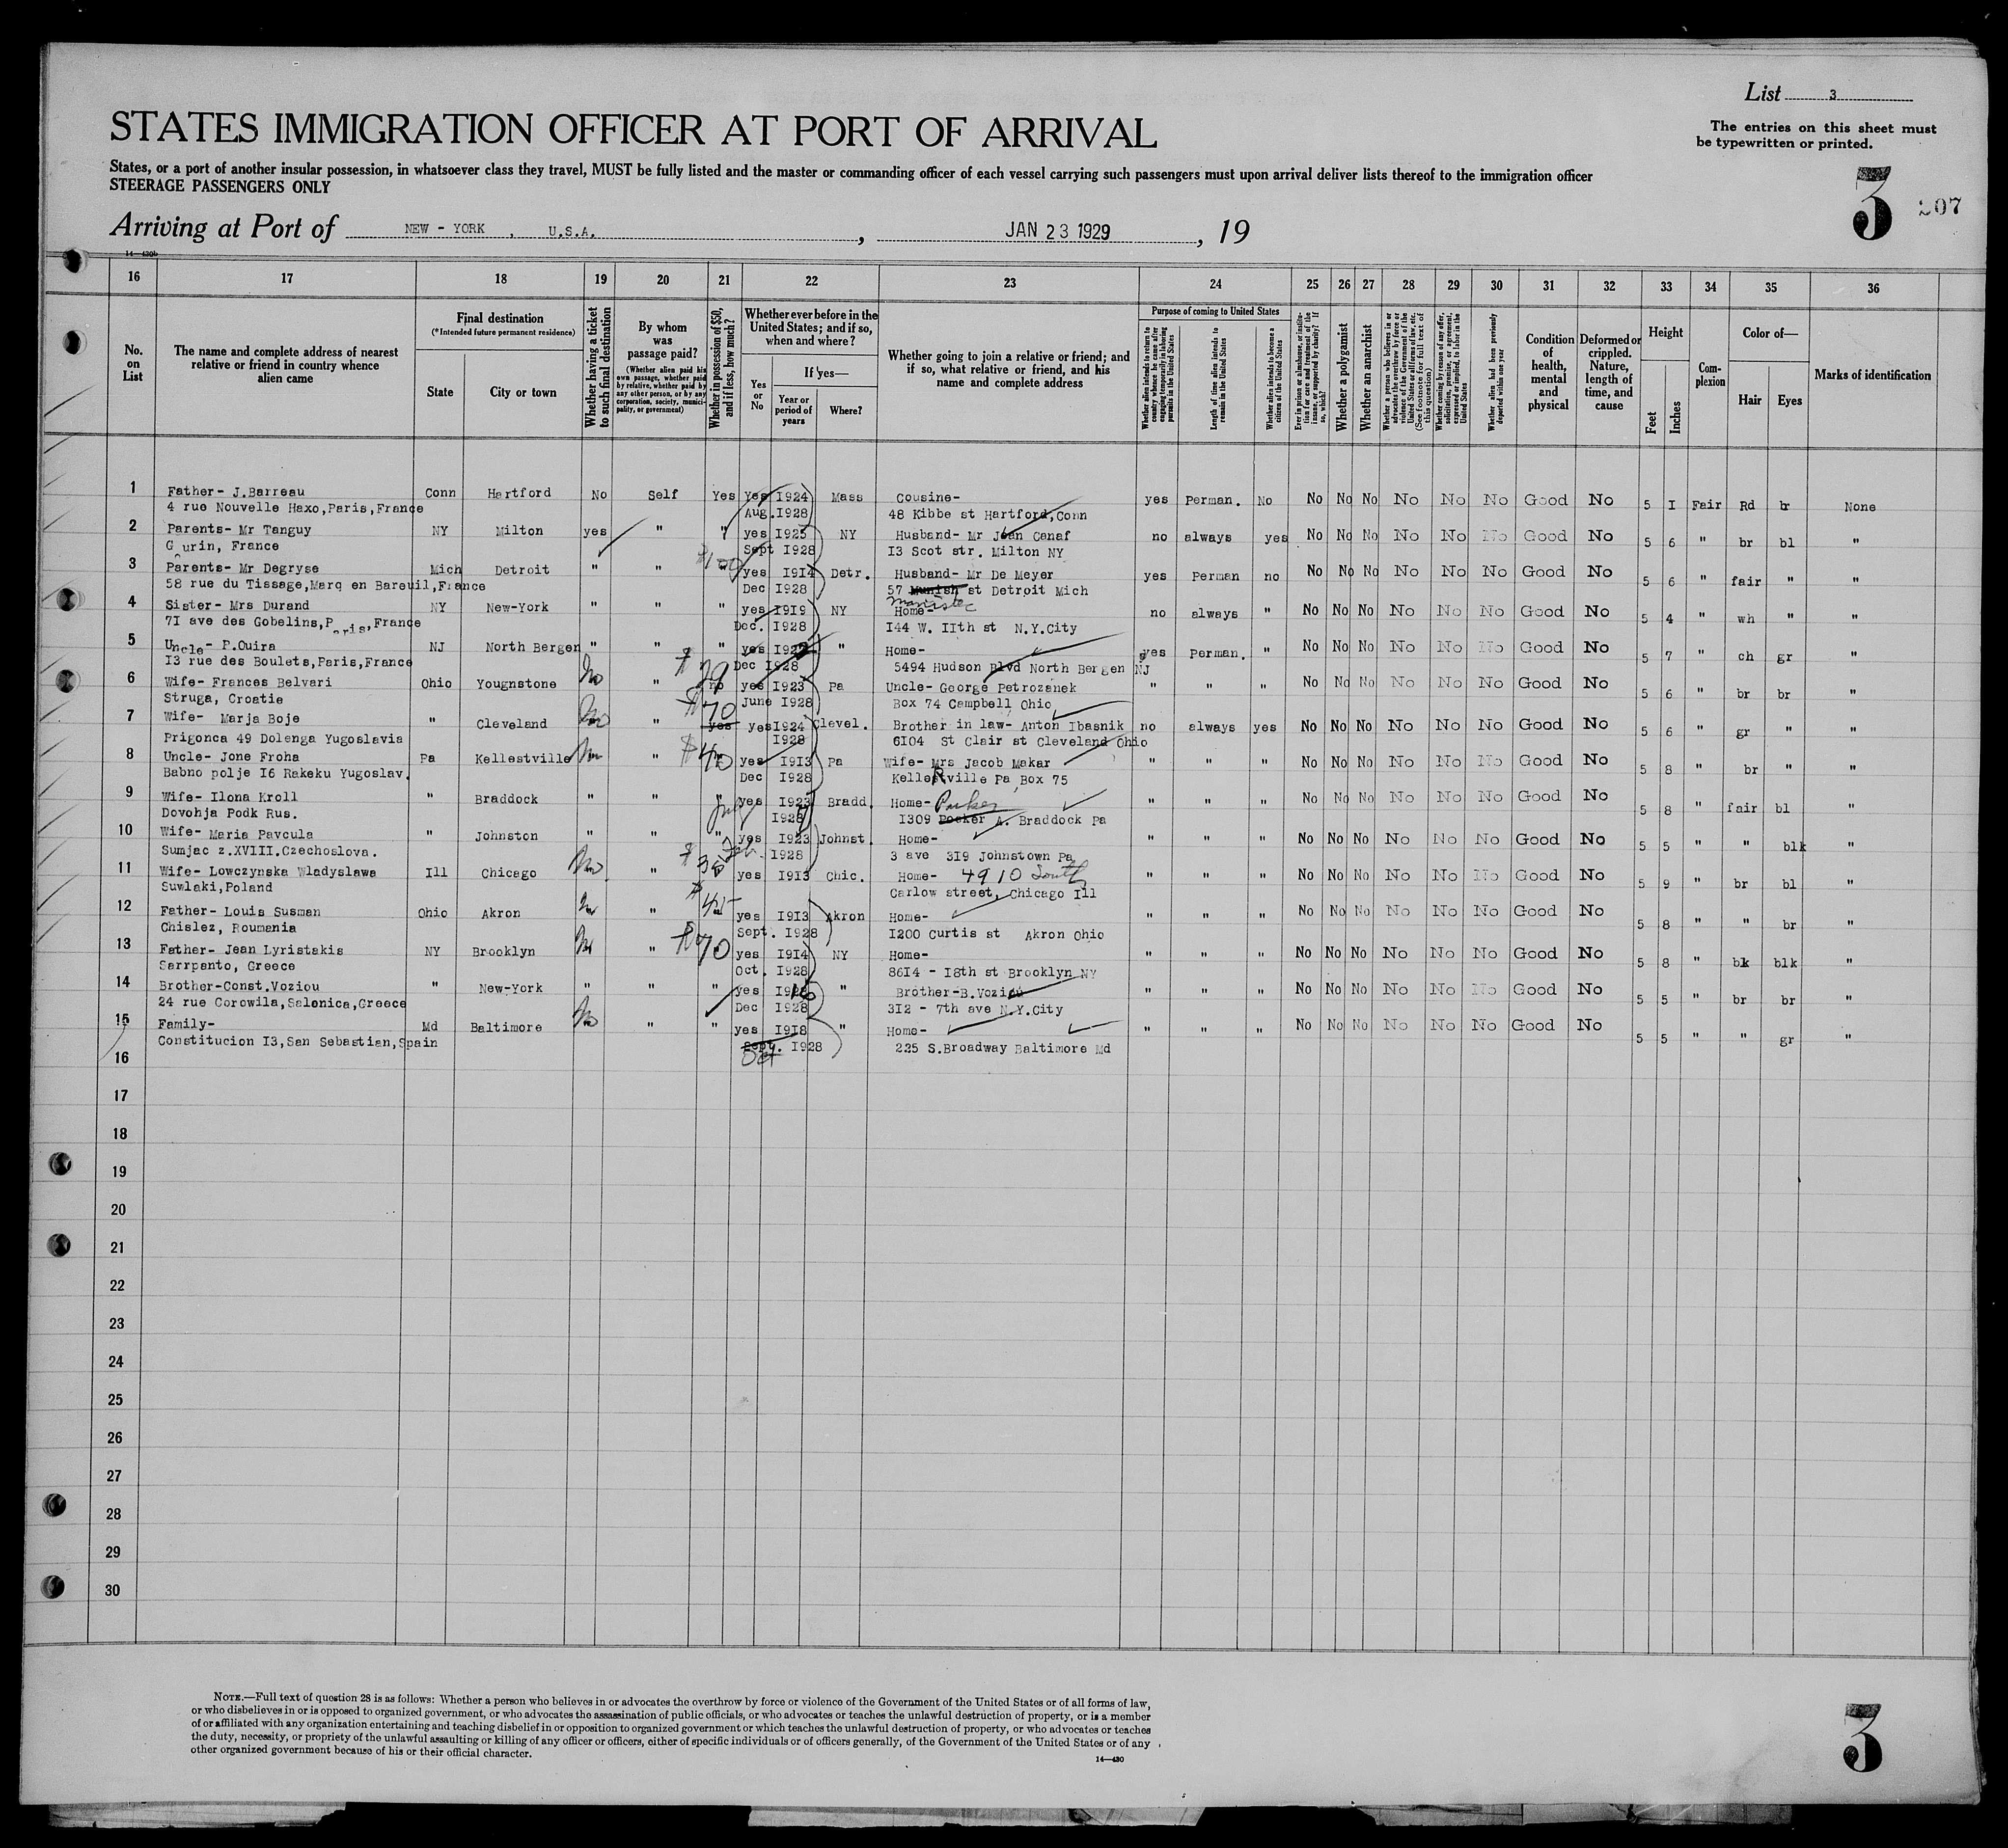 List 3
The entries on this sheet must
be typewritten or printed.
STATES IMMIGRATION OFFICER AT PORT OF ARRIVAL
States, or a port of another insular possession, in whatsoever class they travel, MUST be fully listed and the master or commanding officer of each vessel carrying such passengers must upon arrival deliver lists thereof to the immigration officer
STEERAGE PASSENGERS ONLY
3 207
Arriving at Port of NEW - YORK , U.S.A. , JAN 23 1929 , 19
14—430b
16 17 18 19 20 21 22 23 24 25 26 27 28 29 30 31 32 33 34 35 36
No. on List
The name and complete address of nearest relative or friend in country whence alien came
Final destination
(*Intended future permanent residence)
State
City or town
Whether having a ticket to such final destination
By whom was passage paid?
(Whether alien paid his own passage, whether paid by relative, whether paid by any other person, or by any corporation, society, municipality, or government)
Whether in possession of $50, and if less, how much?
Whether ever before in the United States; and if so, when and where?
Yes or No
If yes—
Year or period of years
Where?
Whether going to join a relative or friend; and if so, what relative or friend, and his name and complete address
Purpose of coming to United States
Whether alien intends to return to country whence he came after engaging temporarily in laboring pursuits in the United States
Length of time alien intends to remain in the United States
Whether alien intends to become a citizen of the United States
Ever in prison or almshouse, or institution for care and treatment of the insane, or supported by charity? If so, which?
Whether a polygamist
Whether an anarchist
Whether a person who believes in or advocates the overthrow by force or violence of the Government of the United States or all forms of law, etc. (See footnote for full text of this question)
Whether coming by reason of any offer, solicitation, promise, or agreement, expressed or implied, to labor in the United States
Whether alien had been previously deported within one year
Condition of health, mental and physical
Deformed or crippled. Nature, length of time, and cause
Height
Feet
Inches
Complexion
Color of—
Hair
Eyes
Marks of identification
1 Father- J.Barreau Conn Hartford No Self Yes Yes I924 Mass Cousine- yes Perman. No No No No No No No Good No 5 I Fair Rd br None
4 rue Nouvelle Haxo,Paris,France Aug.I928 48 Kibbe st Hartford,Conn
2 Parents- Mr Tanguy NY Milton yes " " yes I925 NY Husband- Mr Jean Canaf no always yes No No No No No No Good No 5 6 " br bl "
G urin, France Sept I928 I3 Scot str. Milton NY
3 Parents- Mr Degryse Mich Detroit " " $100 yes I9I4 Detr. Husband- Mr De Meyer yes Perman no No No No No No No Good No 5 6 " fair " "
58 rue du Tissage,Marq en Bareuil,France Dec I928 57 Munish st Detroit Mich
4 Sister- Mrs Durand NY New-York " " " yes I9I9 NY Home- no always " No No No No No No Good No 5 4 " wh " "
7I ave des Gobelins,Paris,France Dec. I928 I44 W. IIth st N.Y.City
5 Uncle- P.Ouira NJ North Bergen " " " yes " Home- yes Perman. " No No No No No No Good No 5 7 " ch gr "
I3 rue des Boulets,Paris,France Dec I928 5494 Hudson Blvd North Bergen NJ
6 Wife- Frances Belvari Ohio Yougnstone No " no yes I923 Pa Uncle- George Petrozanek " " " No No No No No No Good No 5 6 " br br "
Struga, Croatie June I928 Box 74 Campbell Ohio
7 Wife- Marja Boje " Cleveland No " $70 yes yes I924 Clevel. Brother in law- Anton Ibasnik no always yes No No No No No No Good No 5 6 " gr " "
Prigonca 49 Dolenga Yugoslavia I928 6I04 St Clair st Cleveland Ohio
8 Uncle- Jone Froha Pa Kellestville No " $40 yes I9I3 Pa Wife- Mrs Jacob Makar " " " No No No No No No Good No 5 8 " br " "
Babno polje I6 Rakeku Yugoslav. Dec I928 Kellersville Pa,Box 75
9 Wife- Ilona Kroll " Braddock " " " yes I923 Bradd. Home- Parker " " " No No No No No No Good No 5 8 " fair bl "
Dovohja Podk Rus. July I928 I309 Pocker A. Braddock Pa
10 Wife- Maria Pavcula " Johnston " " " yes I923 Johnst. Home- " " " No No No No No No Good No 5 5 " " blk "
Sumjac z.XVIII.Czechoslova. Feb. I928 3 ave 3I9 Johnstown Pa
11 Wife- Lowczynska Wladyslawa Ill Chicago No " $35 yes I9I3 Chic. Home- 4910 South " " " No No No No No No Good No 5 9 " br bl "
Suwlaki,Poland Carlow street, Chicago Ill
12 Father- Louis Susman Ohio Akron No " $45 yes I9I3 Akron Home- " " " No No No No No No Good No 5 8 " " br "
Chislez, Roumania Sept. I928 I200 Curtis st Akron Ohio
13 Father- Jean Lyristakis NY Brooklyn No " $70 yes I9I4 NY Home- " " " No No No No No No Good No 5 8 " bk blk "
Sarrpanto, Greece Oct. I928 86I4 - I8th st Brooklyn NY
14 Brother-Const.Voziou " New-York " " " yes " Brother-B.Voziou " " " No No No No No No Good No 5 5 " br br "
24 rue Corowila,Salonica,Greece Dec I928 3I2 - 7th ave N.Y.City
15 Family- Md Baltimore No " " yes I9I8 " Home- " " " No No No No No No Good No 5 5 " " gr "
Constitucion I3,San Sebastian,Spain Sept. Oct I928 225 S.Broadway Baltimore Md
16
17
18
19
20
21
22
23
24
25
26
27
28
29
30
NOTE.—Full text of question 28 is as follows: Whether a person who believes in or advocates the overthrow by force or violence of the Government of the United States or of all forms of law,
or who disbelieves in or is opposed to organized government, or who advocates the assassination of public officials, or who advocates or teaches the unlawful destruction of property, or is a member
of or affiliated with any organization entertaining and teaching disbelief in or opposition to organized government or which teaches the unlawful destruction of property, or who advocates or teaches
the duty, necessity, or propriety of the unlawful assaulting or killing of any officer or officers, either of specific individuals or of officers generally, of the Government of the United States or of any
other organized government because of his or their official character.
14—430
3